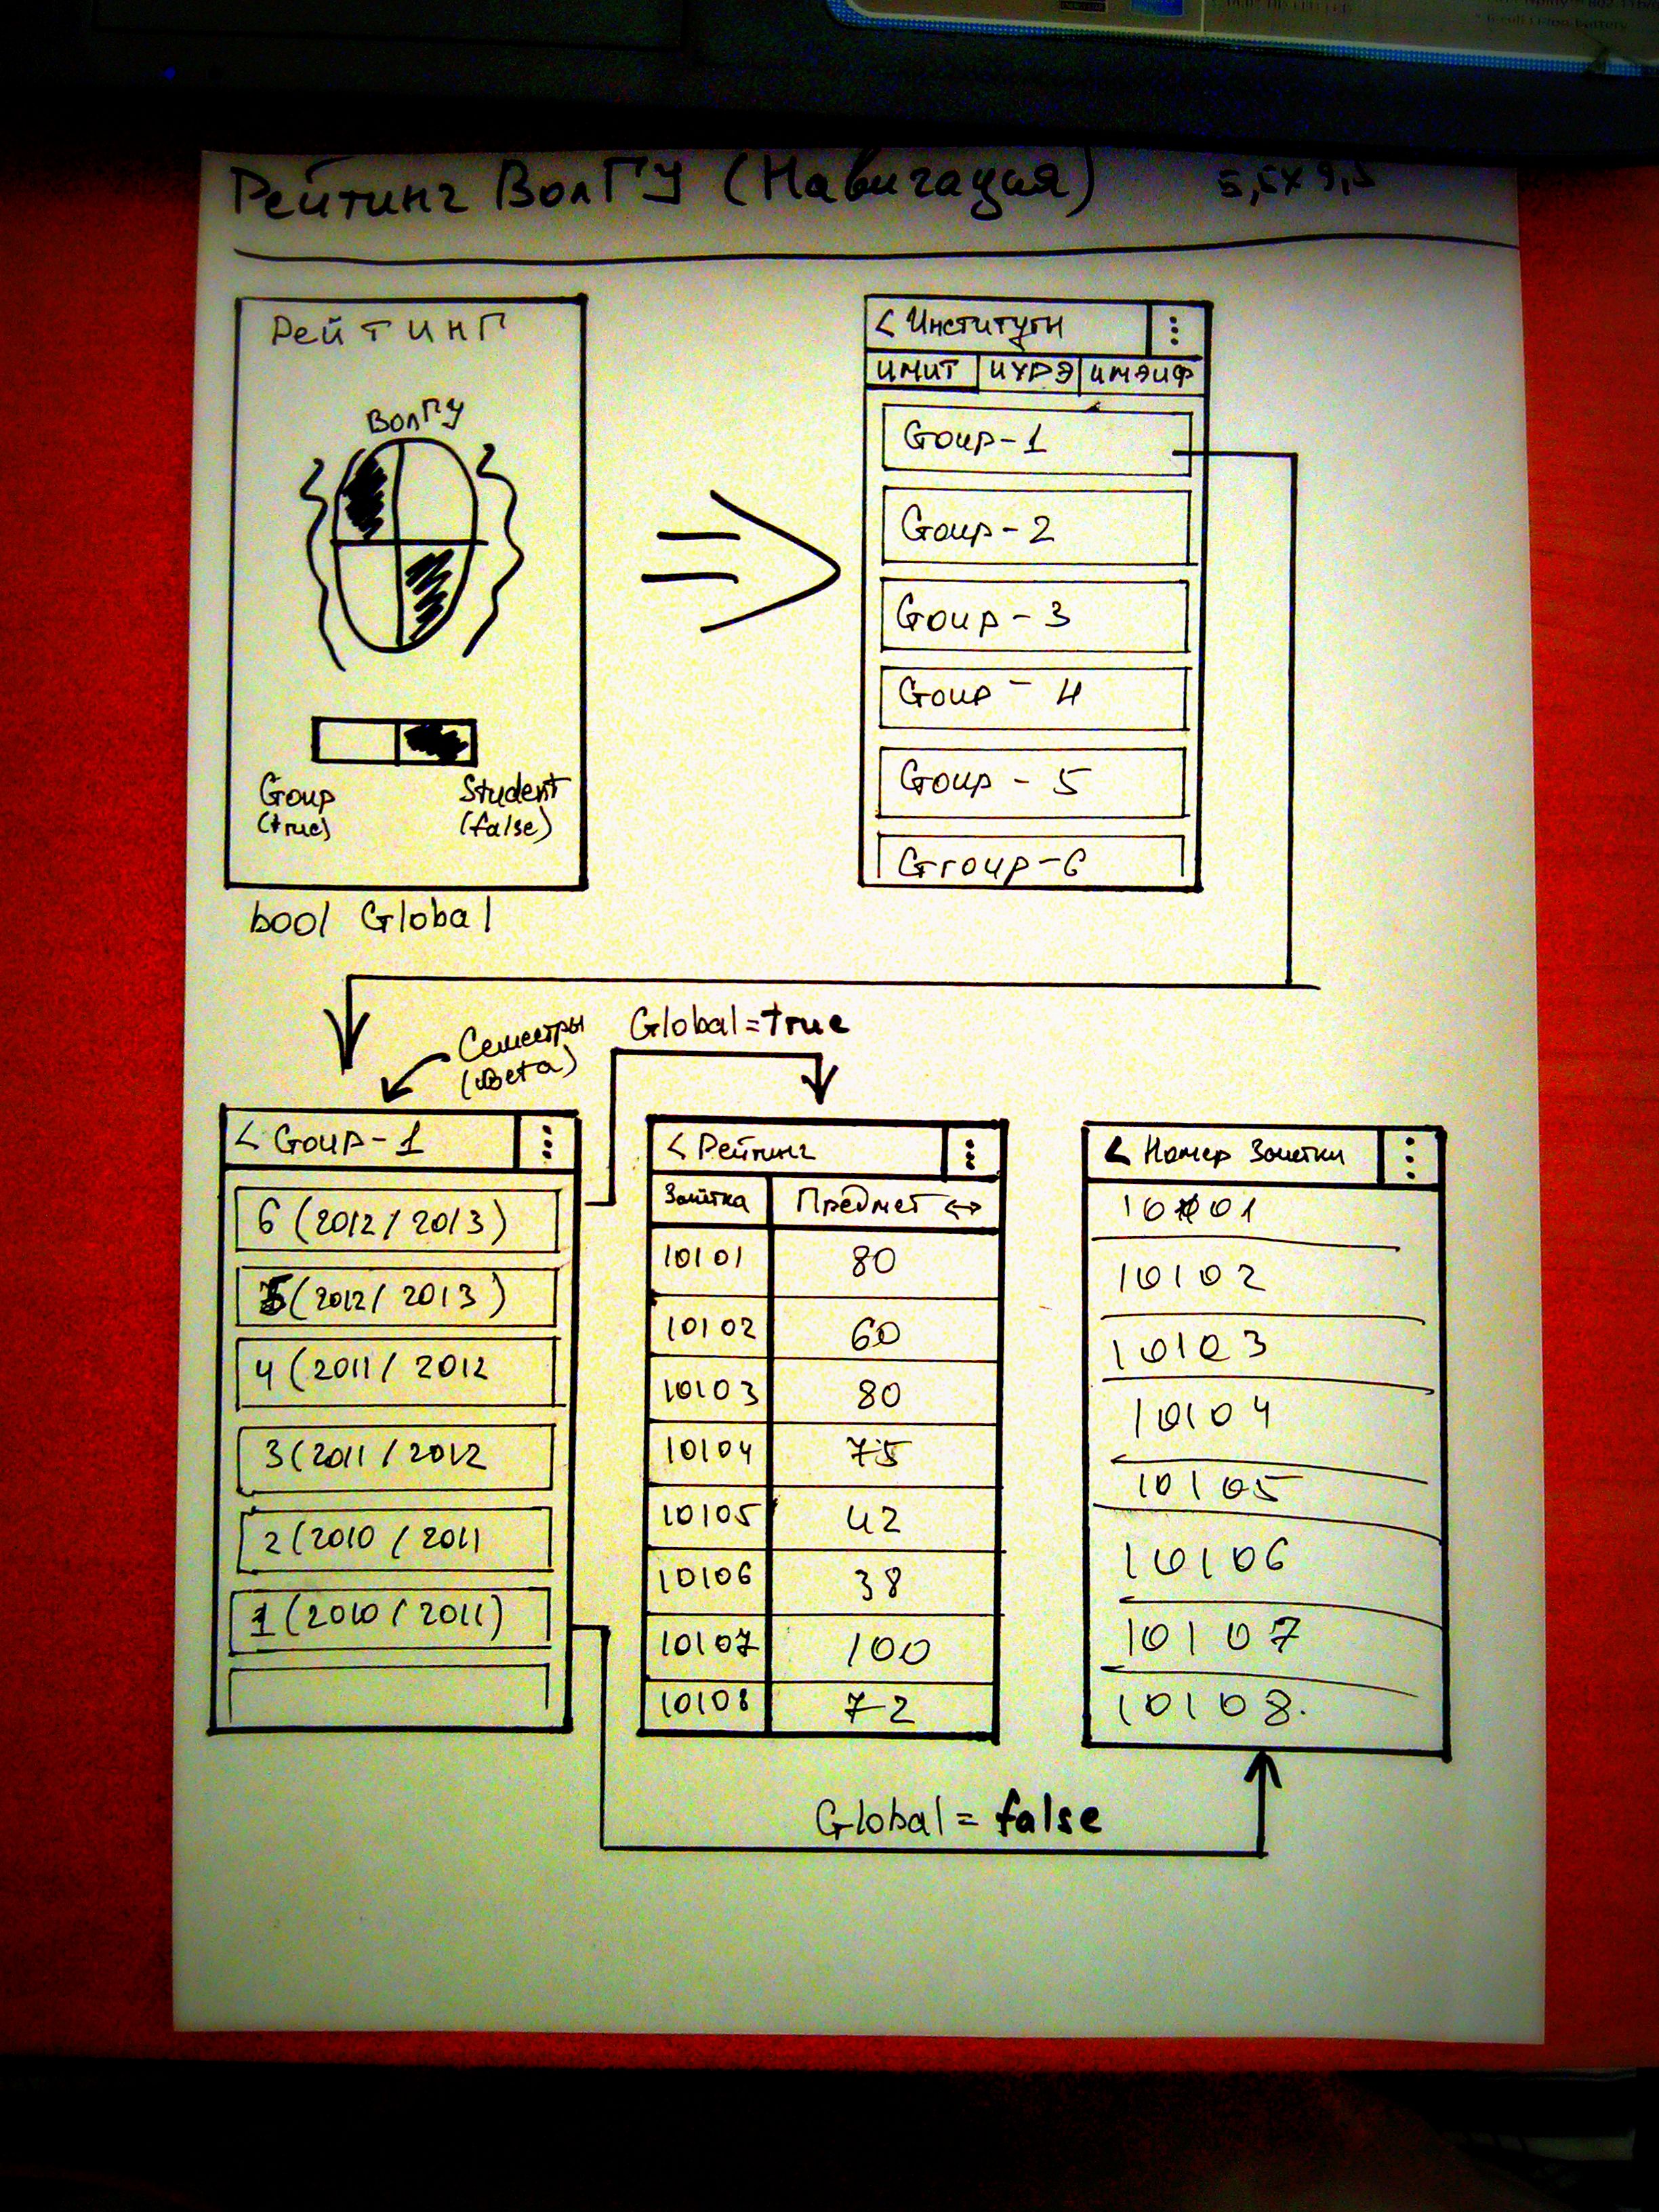 Рейтинг ВолГУ (Навигация)
РейТИНГ
ВолГУ
Goup
(true)
Student
(false)
bool Global
< Институты
ИМИТ ИУРЭ ИМЭИФ
Goup-1
Goup-2
Goup-3
Goup-4
Goup-5
Group-6
Семестры
Global=true
< Goup-1
6 (2012/2013)
5 (2012/2013)
4 (2011/2012
3 (2011/2012
2 (2010/2011
1 (2010/2011)
< Рейтинг
Зачётка Предмет ↔
10101 80
10102 60
10103 80
10104 75
10105 42
10106 38
10107 100
10108 72
< Номер Зачетки
10101
10102
10103
10104
10105
10106
10107
10108.
Global=false